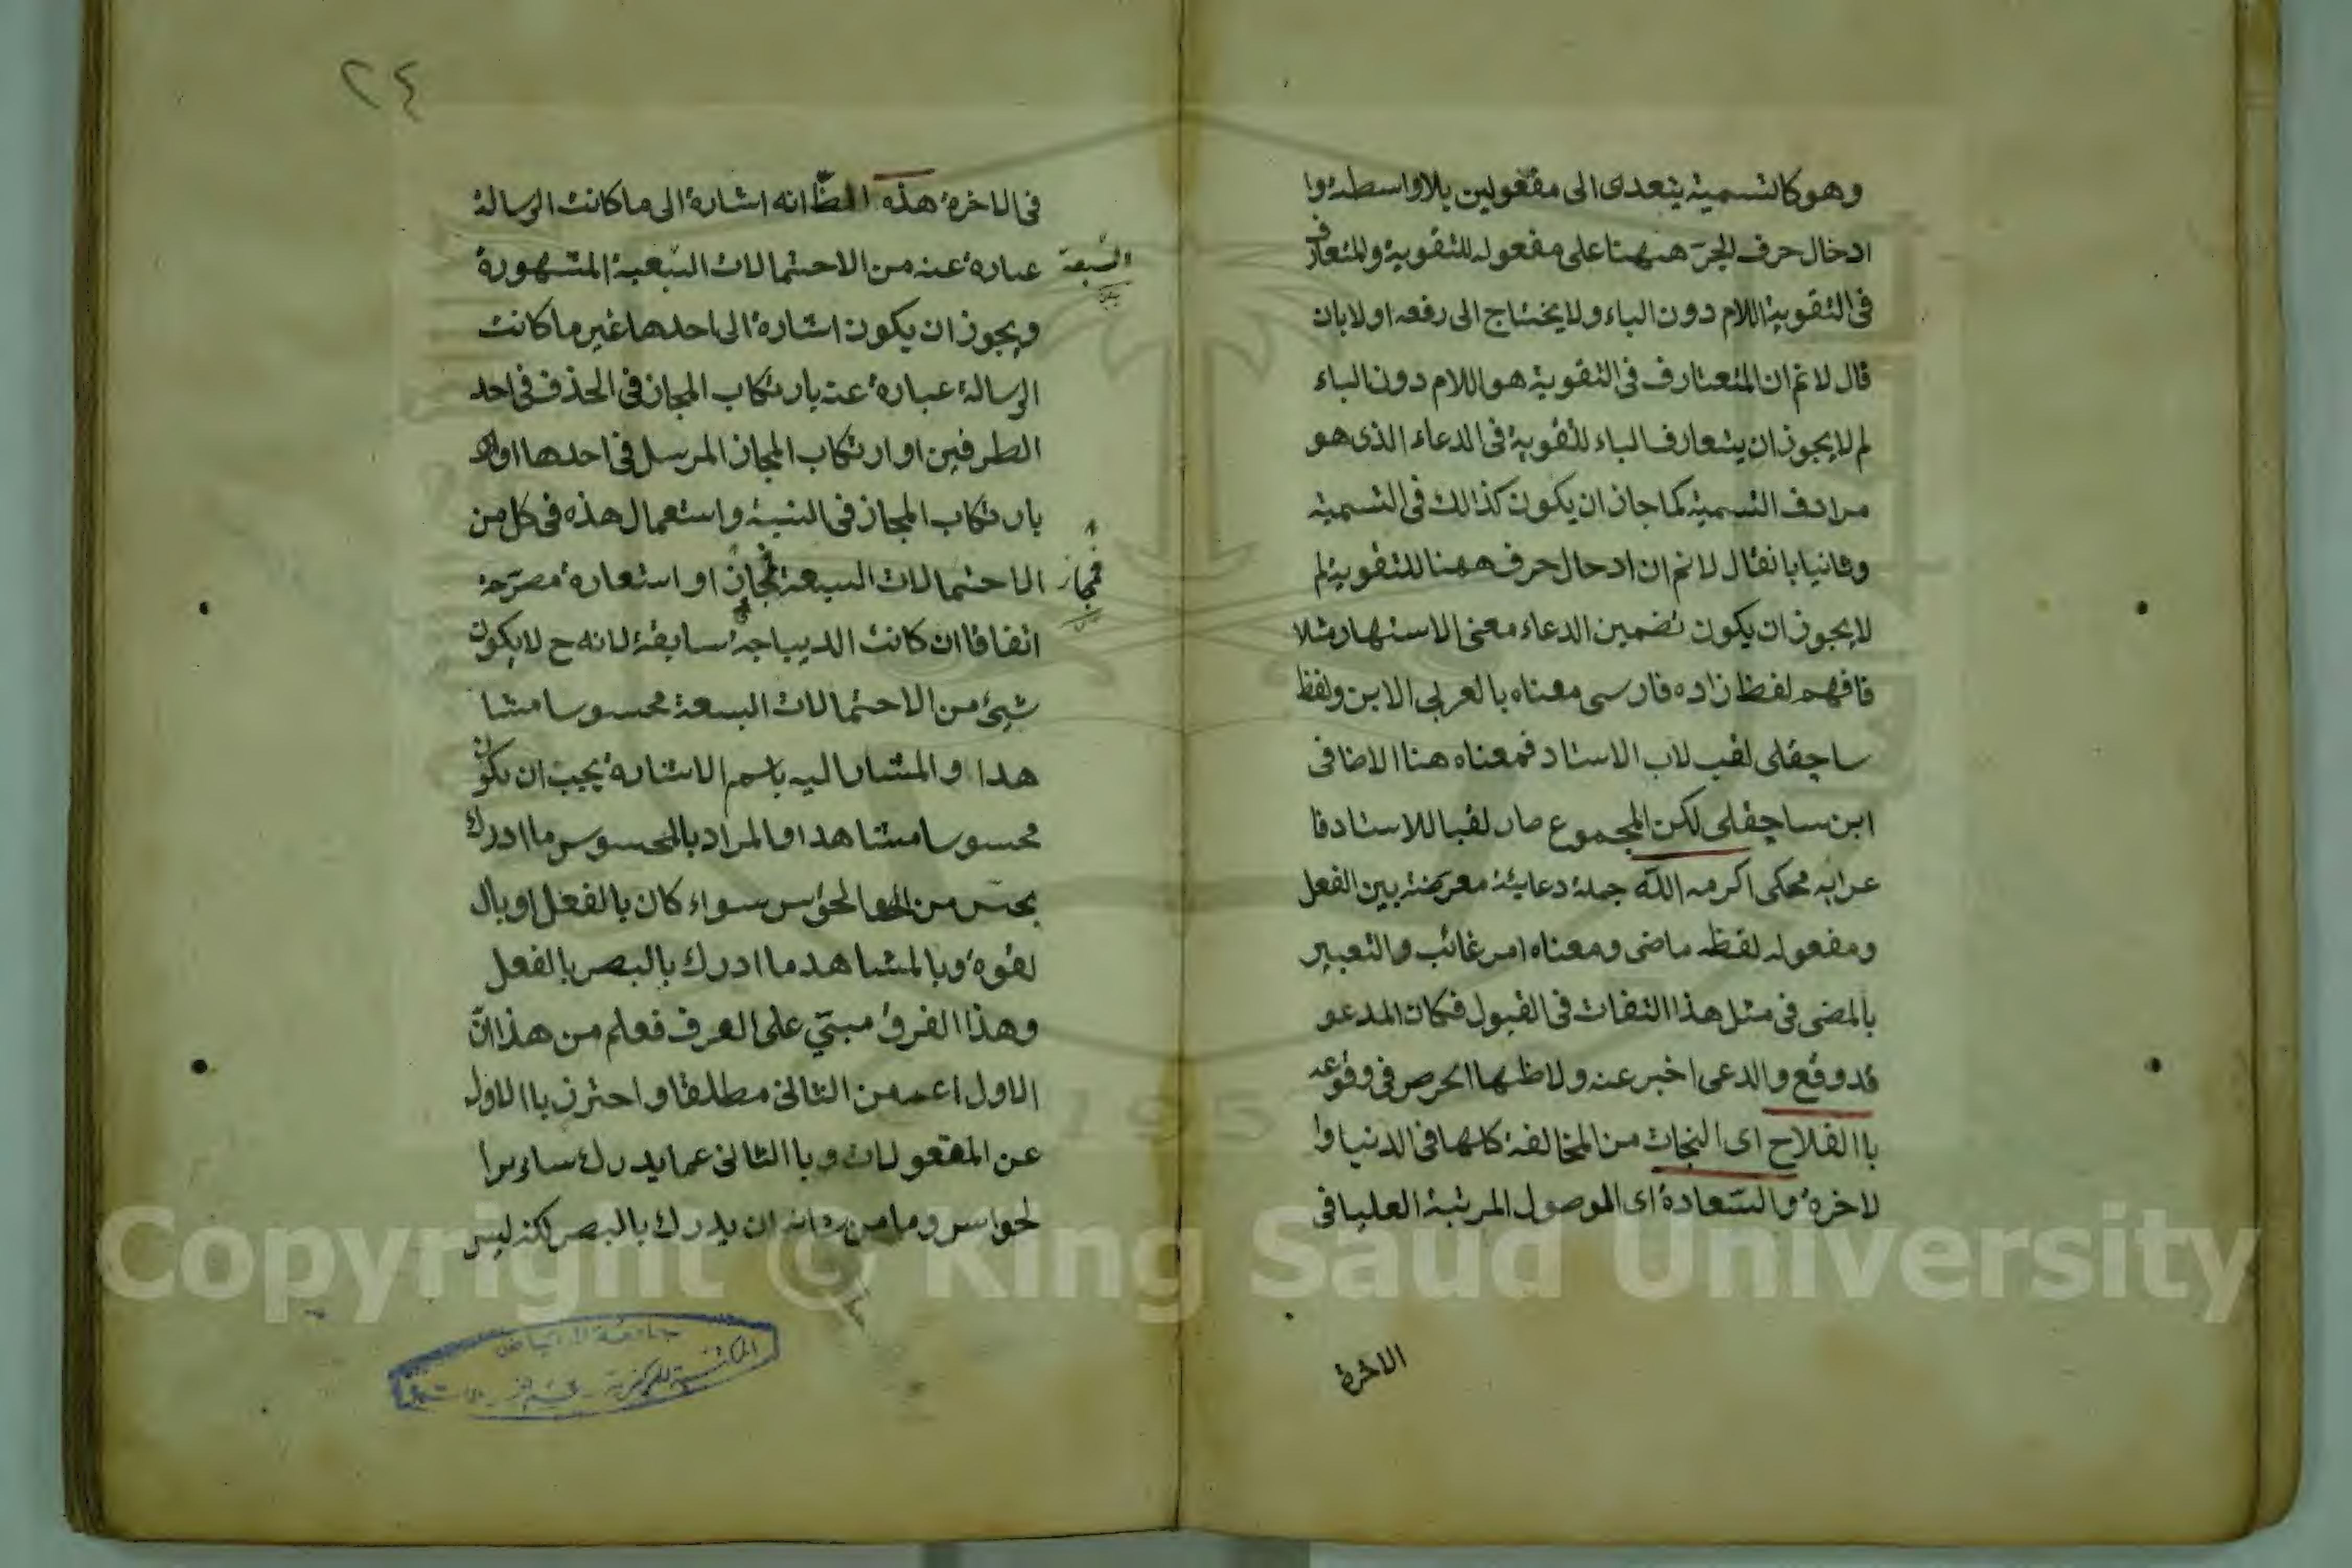 وهو كالتسمية يتعدى الى مفعولين بلا واسطة وا
ادخال حرف الجر ههنا على مفعوله للتقوية والمتعارف
فى التقوية اللام دون الباء ولا يحتاج الى رفعه اولا بان
قال لا نم ان المتعارف فى التقوية هو اللام دون الباء
لم لا يجوز ان يتعارف الباء للتقوية فى الدعاء الذى هو
مرادف التسمية كما جاز ان يكون كذالك فى التسمية
وثانيا بانقال لا نم ان ادحال حرف ههنا للتقوية لم
لا يجوز ان يكون تضمين الدعاء معنى الاستهار مثلا
فافهم لفظ زاده فارسى معناه بالعربى الابن ولفظ
ساچقلى لقب لاب الاستاد فمعناه هنا الاضافى
ابن ساچقلى لكن المجموع صار لقبا للاستاد فا
عرابه محكى اكرمه الله جملة دعائية معرضة بين الفعل
ومفعوله لفظه ماضى ومعناه امر غائب والتعبير
بالمضى فى مثل هذا التفات فى القبول فكان المدعو
قد وقع والدعى اخبر عنه ولاظهاالحرص فى وقوعه
باالفلاح اى النجات من المخالفة كلها فى الدنيا وا
لاخرة والسعادة اى الموصول المرتبة العليا فى
الاخرة
٢٤
فى الاخرة هذه الظ انه اشارة الى ما كانت الرسالة
عبارة عنه من الاحتمالات السبعية المشهورة
السبعة
ويجوز ان يكون اشارة الى احدها غير ما كانت
الرسالة عبارة عنه بارتكاب المجاز فى الحذف فى احد
الطرفين او ارتكاب المجاز المرسل فى احدها او
بارتكاب المجاز فى النسبة واستعمال هذه فى كل من
الاحتمالات السبعة مجاز او استعارة مصرحة
فمجاز
اتفاقا ان كانت الديباجة سابقة لانه ح لا يكون
شيئ من الاحتمالات السبعة محسوسا مشا
هدا والمشار اليه باسم الاشارة يجب ان يكون
محسوسا مشاهدا والمراد بالمحسوس ما ادرك
بحس من الحواس سواء كان بالفعل او بال
لقوة وبالمشاهد ما ادرك بالبصر بالفعل
وهذا الفرق مبنى على العرف فعلم من هذا ان
الاول اعم من الثانى مطلقا واحترز باالاول
عن المقعولات وباالثانى عما يدرك سائر ا
لحواس وما من شانه ان يدرك بالبصر لكنه ليس
جامعة الرياض
Copyright © King Saud University